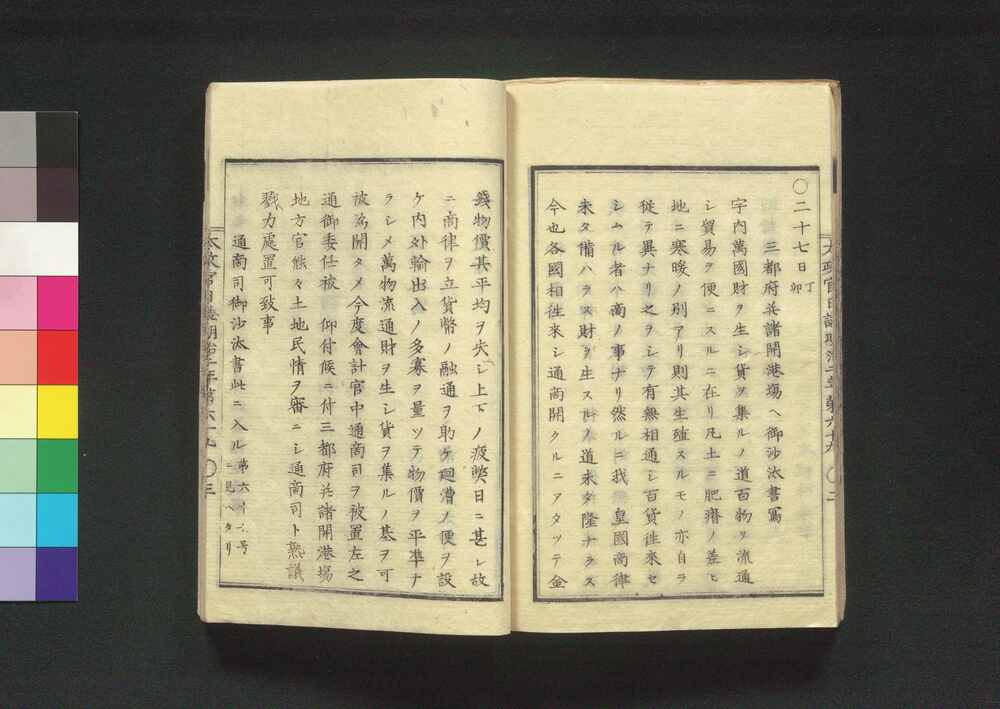 〇二十七日丁卯
三都府并諸開港場ヘ御沙汰書寫
宇内萬國財ヲ生シ貨ヲ集ルノ道百物ヲ流通
シ貿易ヲ便ニスルニ在リ凡土ニ肥瘠ノ差ヒ
地ニ寒暖ノ別アリ則其生殖スルモノ亦自ラ
従テ異ナリ之ヲシテ有無相通シ百貨徃来セ
シムル者ハ商ノ事ナリ然ルニ我 皇國商律
未タ備ハラス財ヲ生スルノ道未タ隆ナラス
今也各國相徃来シ通商開クルニアタツテ金
錢物價其平均ヲ失シ上下ノ疲獘日ニ甚シ故
ニ商律ヲ立貨幣ノ融通ヲ助ケ廻漕ノ便ヲ設
ケ内外輸出入ノ多寡ヲ量ツテ物價ヲ平準ナ
ラシメ萬物流通財ヲ生シ貨ヲ集ルノ基ヲ可
被為開タメ今度會計官中通商司ヲ被置左之
通御委任被 仰付候ニ付三都府并諸開港場
地方官能々土地民情ヲ審ニシ通商司ト熟議
戮力處置可致事
通商司御沙汰書此ニ入ル第六十二号ニ見ヘタリ
太政官日誌明治二年第六十九 〇二
太政官日誌明治二年第六十九 〇三